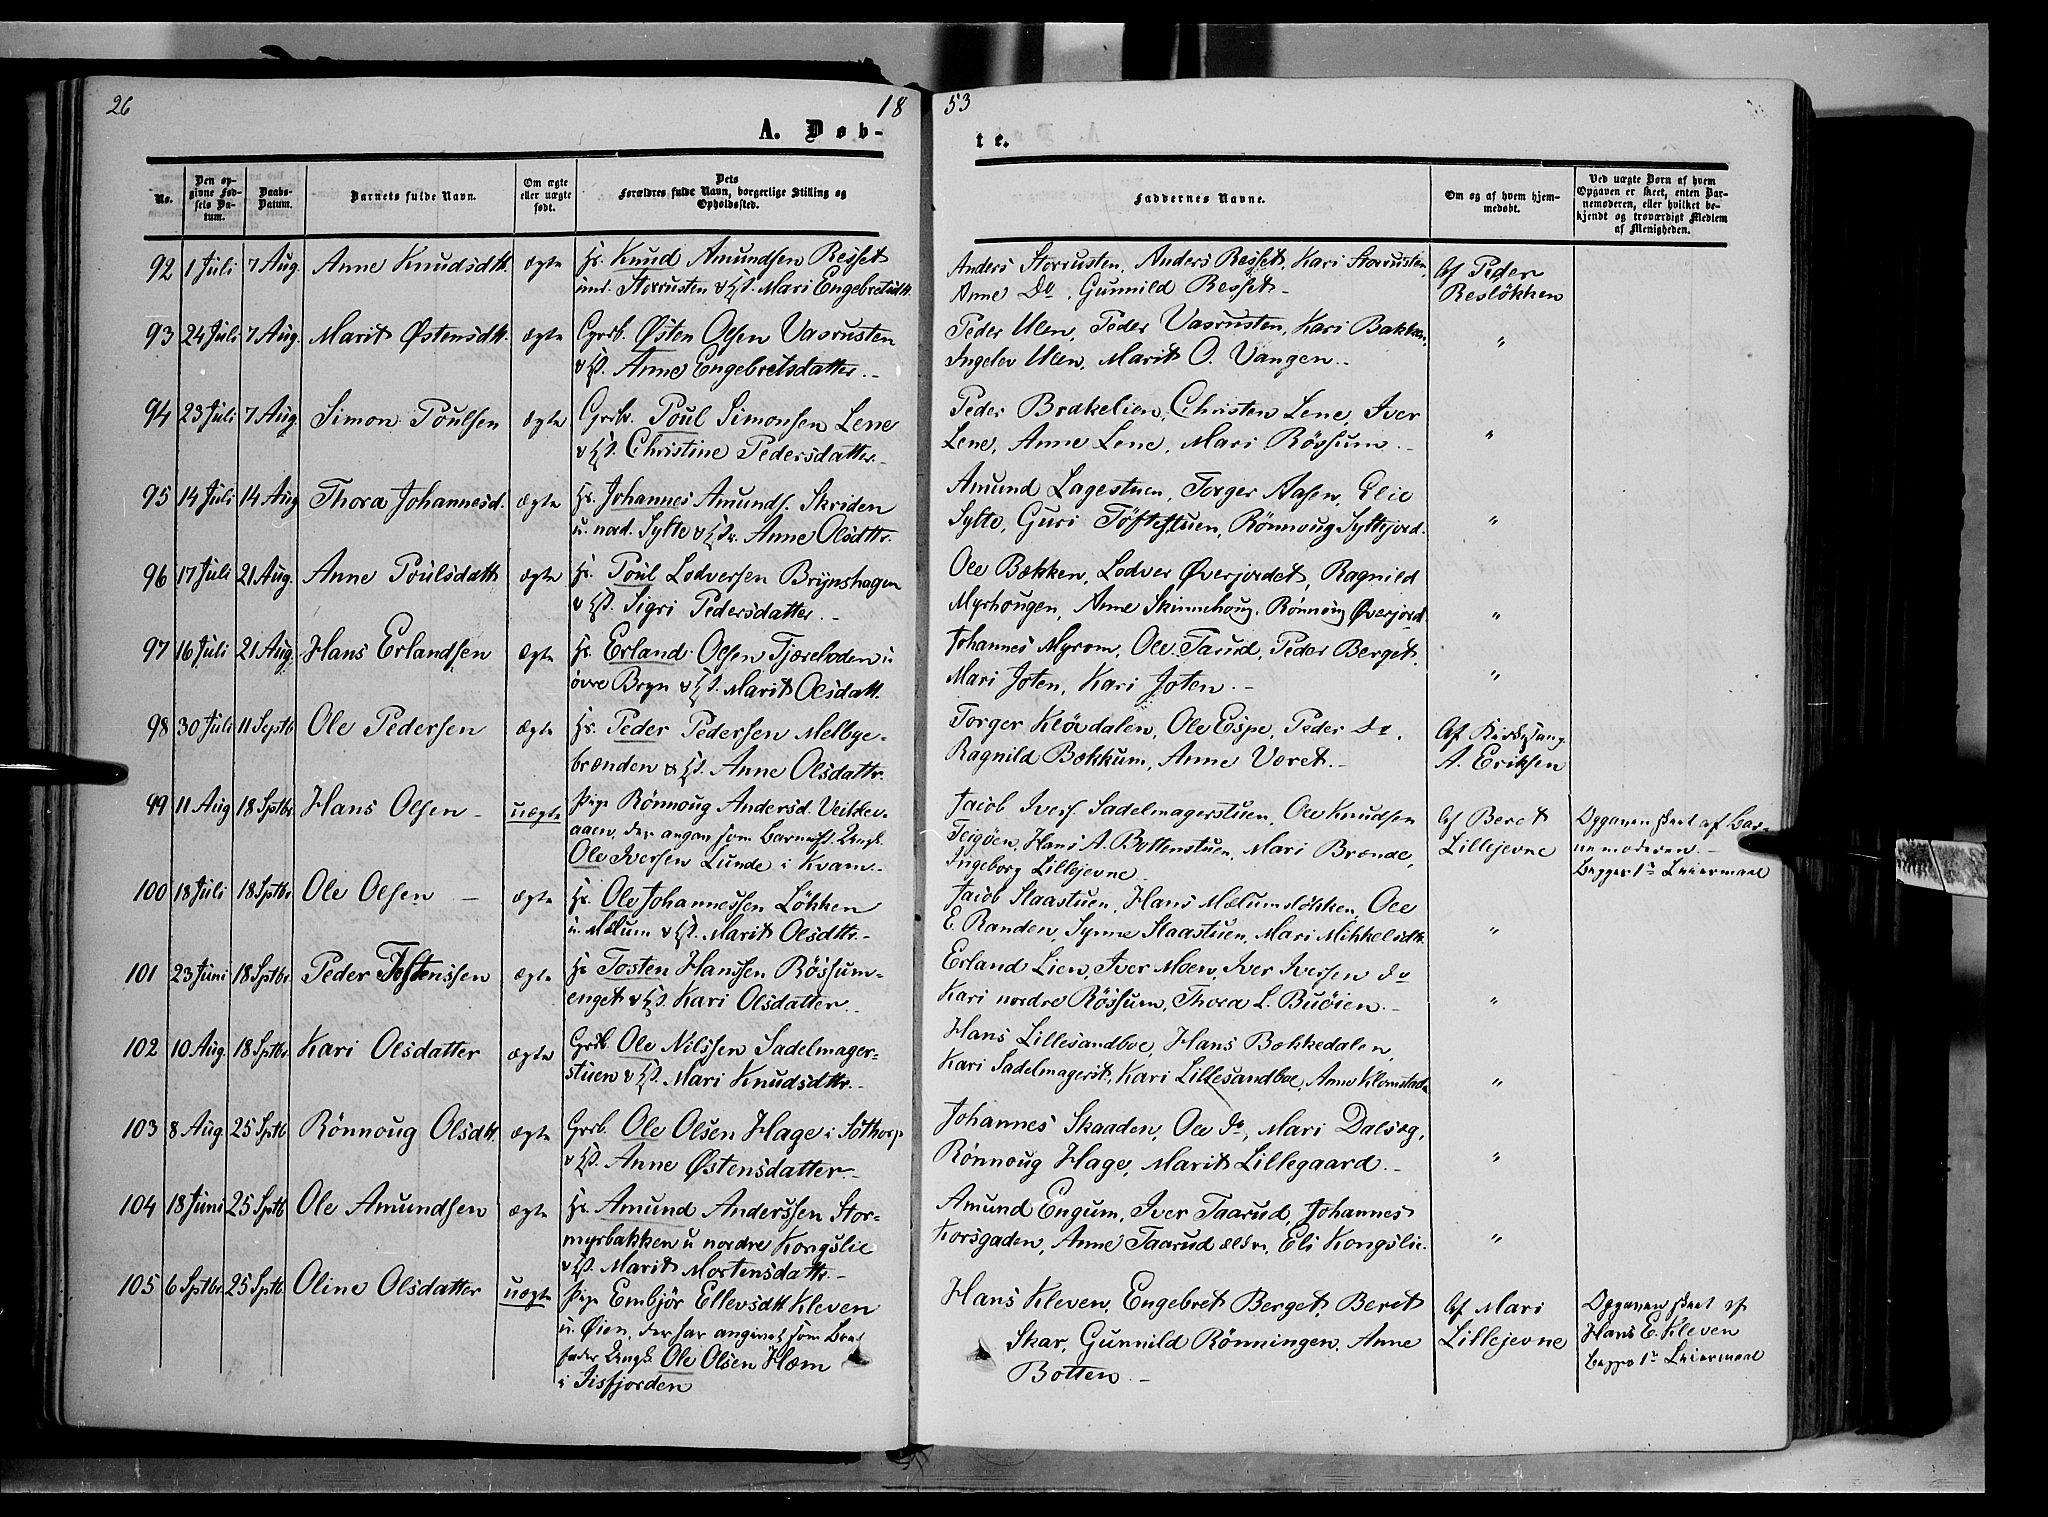 26
18
53
A. Døb-
te.
No.
Den op-
givne Fød-
sels Da-
tum.
Daabs-
Datum.
Barnets fulde Navn.
Om ægte
eller uægte
født.
Dets
Forældres fulde Navn, borgerlige Stilling og
Opholdssted.
Faddernes Navne.
Om og af hvem hjem-
medøbt.
Ved uægte Børn af hvem
Opgaven er skeet, enten Bar-
nemoderen, eller hvilket be-
kjendt og troværdigt Medlem
af Menigheden.
92 1 Juli 7 Aug. Anne Knudsdtr. ægte Hr. Knud Amundsen Resset
und. Storrusten & H. Mari Engebretsdtr.
Anders Storrusten, Anders Resset, Kari Storrusten,
Anne Do, Gunnild Resset.–
Af Peder
Resløkken
93 24 Juli 7 Aug. Marit Østensdtr. ægte Grb. Østen Olsen Vasrusten
& H. Anne Engebretsdatter.–
Peder Ulen, Peder Vasrusten, Kari Bakken,
Ingelev Ulen, Marit O. Vangen.–
"
94 23 Juli 7 Aug. Simon Poulsen ægte Grb. Poul Simonsen Lene
& H. Christine Pedersdatter.–
Peder Brækelien, Christen Lene, Iver
Lene, Anne Lene, Mari Røssum.–
"
95 14 Juli 14 Aug Thora Johannesd. ægte Hr. Johannes Amunds. Skriden
u. nord. Sylte & H. Anne Olsdtr.
Amund Lagestuen, Torger Aasen, Elie
Sylte, Guri Töftestuen, Rönnoug Syltejord.
"
96 17 Juli 21 Aug. Anne Poulsdatt. ægte Hr. Poul Lodversen Brynshagen
& H. Sigri Pedersdatter.–
Ole Bækken, Lodver Øverjordet, Ragnild
Myrhougen, Anne Skinnehoug, Rönnoug Øverjord.
"
97 16 Juli 21 Aug. Hans Erlandsen ægte Hr. Erland Olsen Tjæreloden u
øvre Bryn & H. Marit Olsdatt.
Johannes Myrom, Ole Taurd, Peder Berget,
Mari Joten, Kari Joten.–
"
98 30 Juli 11 Septb. Ole Pedersen ægte Hr. Peder Pedersen Melbye-
brænden & H. Anne Olsdattr.
Torger Kløvdalen, Ole Espe, Peder do,
Ragnild Bækkum, Anne Voret.–
Af Kirkesang.
A. Eriksen
99 11 Aug 18 Sptbr. Hans Olsen – uægte Pige Rönnoug Andersd. Veikle-
aaen, der angav som Barnefr. Ungk.
Ole Iversen Lunde i Kvam.–
Jacob Ivers. Sadelmagerstuen, Ole Knudsen
Teigøen, Hans A. Bottenstuen, Mari Brænde,
Ingeborg Lillejevne.–
Af Beret
Lillejevne
Opgaven skeet af Bar-
nemoderen.–
Begges 1ste Leiermaal
100 18 Juli 18 Sptbr. Ole Olsen – ægte Hr. Ole Johannessen Løkken
u. Mælum & H. Marit Olsdtr.–
Jacob Staastuen, Hans Mælumsløkken, Ole
E. Randen, Synne Staastuen, Mari Mikkelsdtr.
"
101 23 Juni 18 Sptbr. Peder Tostenssen ægte Hr Tosten Hanssen Røssum-
enget & H. Kari Olsdatter.–
Erland Lien, Iver Moen, Iver Iversen do
Kari nordre Røssum, Thora L. Buøien.–
"
102 10 Aug. 18 Sptbr. Kari Olsdatter ægte Grb. Ole Nilssen Sadelmager-
stuen & H. Mari Knudsdtr.–
Hans Lillesandboe, Hans Bækkedalen,
Kari Sadelmagerst, Kari Lillesandboe, Anne Klomstad
"
103 8 Aug. 25 Sptb. Rönnoug Olsdtr ægte Grb. Ole Olsen Hage i Sothorp
& H. Anne Østensdatter.–
Johannes Skaaden, Ole do, Mari Dalseg,
Rönnoug Hage, Marit Lillegaard.–
"
104 18 Juni 25 Sptb. Ole Amundsen ægte Hr. Amund Anderssen Stor-
myrbakken u nordre Kongslie
& H. Marit Mortensdatr.–
Amund Engum, Iver Taarud, Johannes
Korsgaden, Anne Taarud ældre, Eli Kongslie.
"
105 6 Sptbr. 25 Sptb. Oline Olsdatter uægte Pige Embjør Ellevsdtr Kleven
u. Øien, der har angivet som Barne-
fader Ungk. Ole Olsen Hæm
i Iisfjorden
Hans Kleven, Engebret Berget, Beret
Skar, Gunnild Rönningen, Anne
Botten.–
Af Mari
Lillejevne
Opgaven skeet af
Hans E. Kleven
begges 1ste Leiermaal